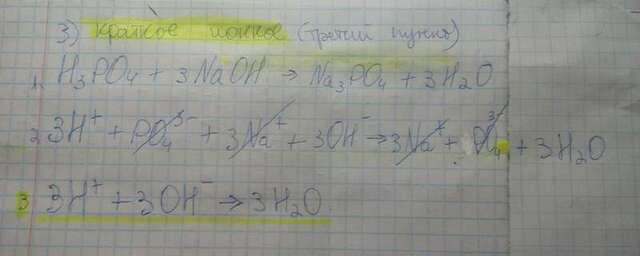 3) краткое ионное (третий пункт)
1. H₃PO₄ + 3NaOH → Na₃PO₄ + 3H₂O
2 3H⁺ + PO₄³⁻ + 3Na⁺ + 3OH⁻ → 3Na⁺ + PO₄³⁻ + 3H₂O
3 3H⁺ + 3OH⁻ → 3H₂O